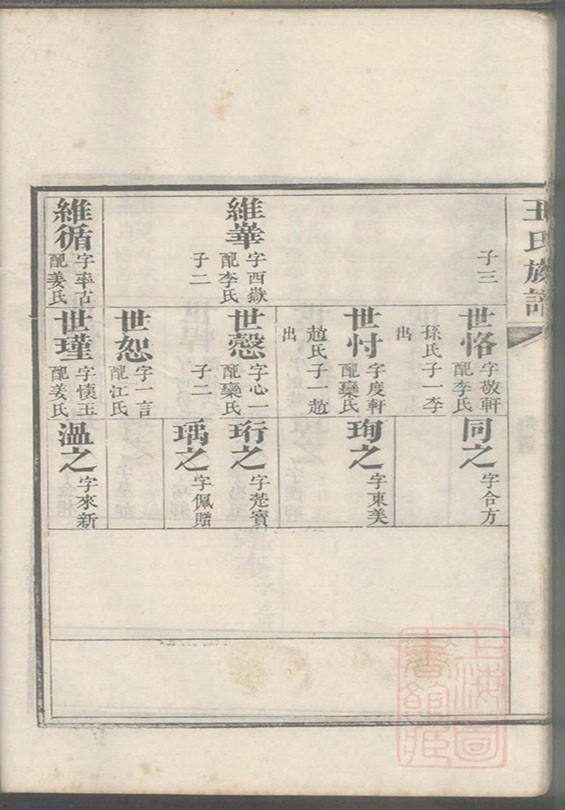 王氏族譜
子三
維華 字西嶽 配李氏 子二
維循 字率古 配姜氏
世恪 字敬軒 配李氏 孫氏子一李出
世忖 字度軒 配欒氏 趙氏子一趙出
世慤 字心一 配欒氏 子二
世恕 字一言 配江氏
世瑾 字懷玉 配姜氏
同之 字合方
珣之 字東美
珩之 字楚寳
瑀之 字佩贈
溫之 字來新
上海圖書館藏